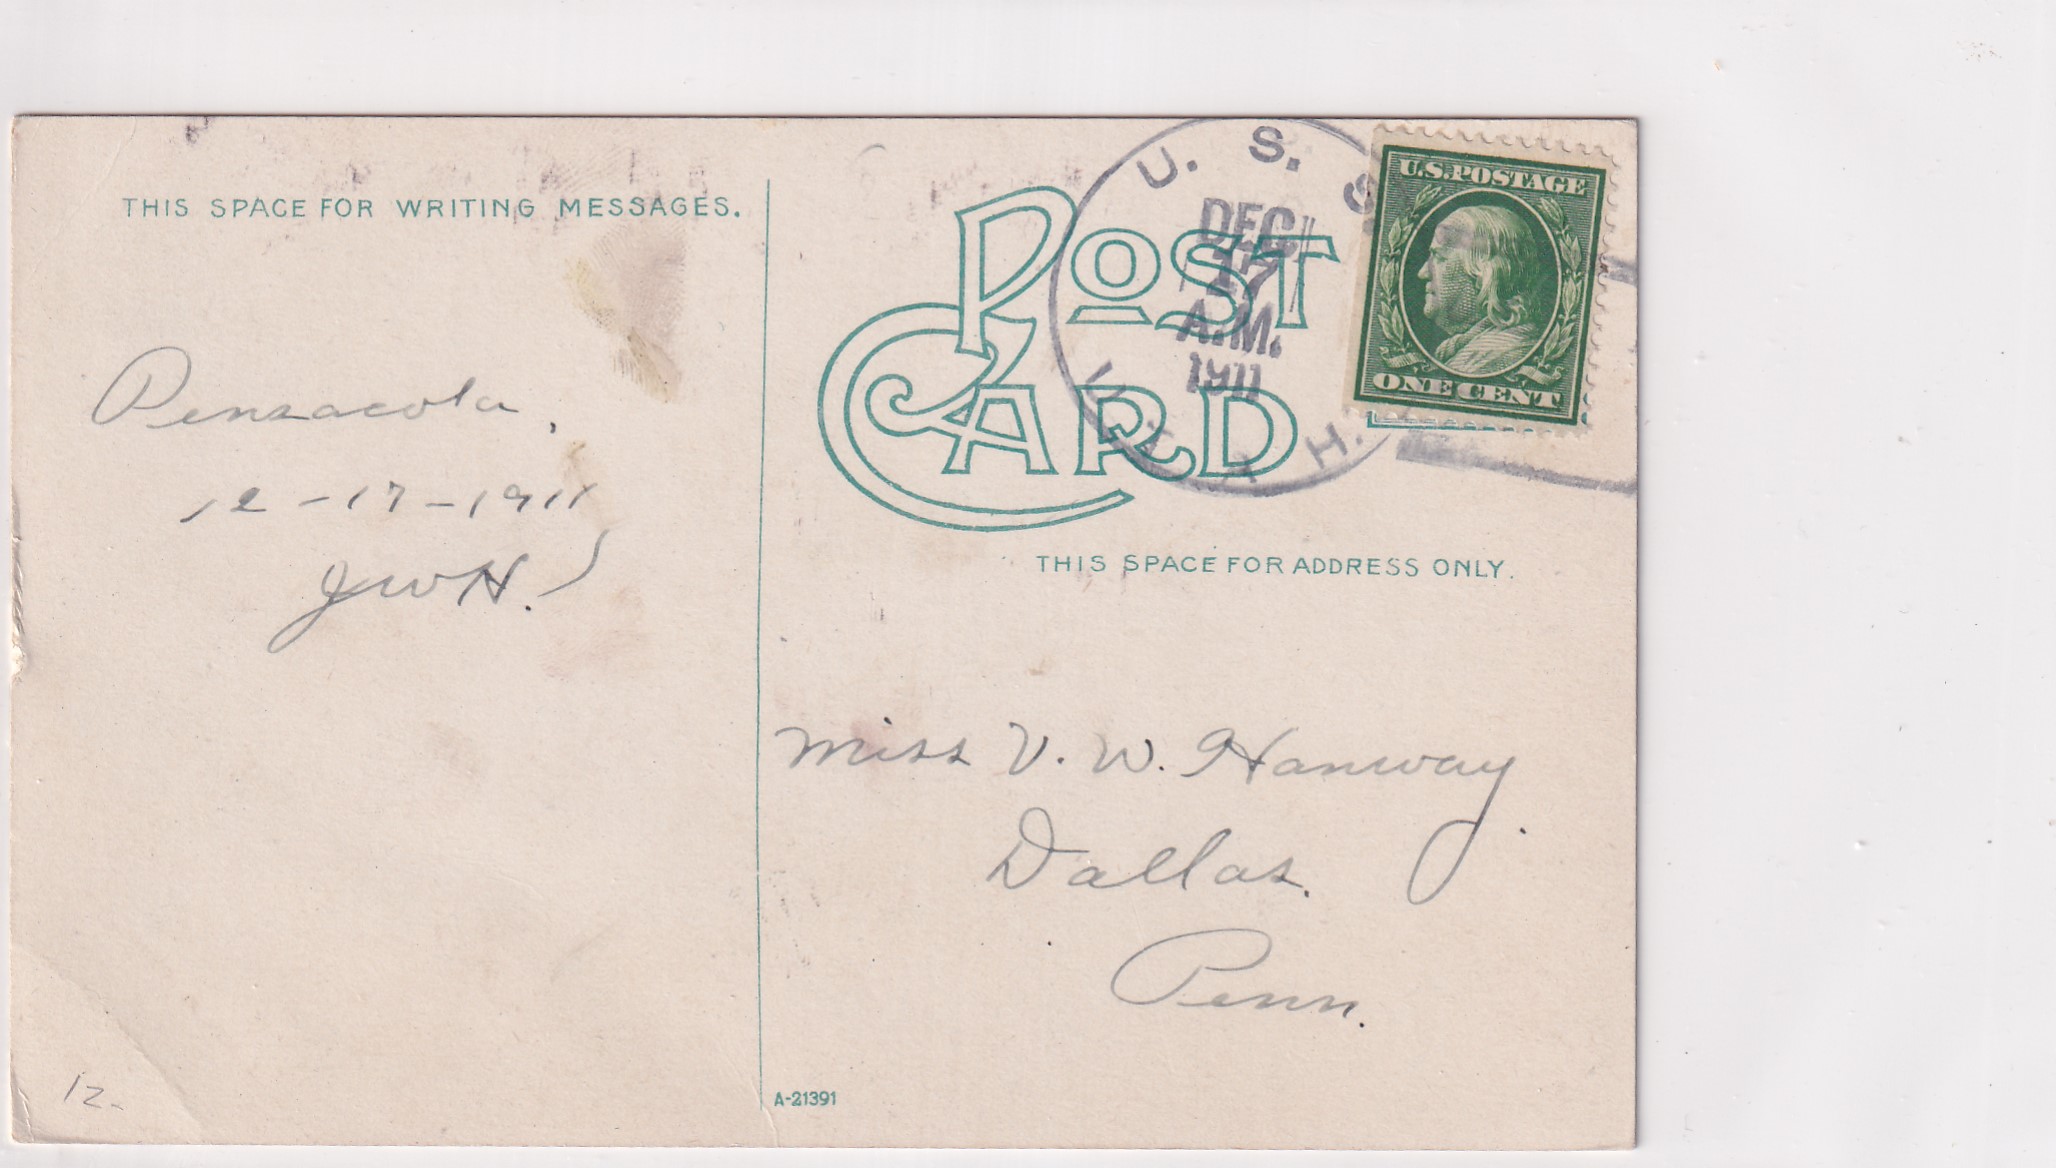 THIS SPACE FOR WRITING MESSAGES.
Pensacola,
12-17-1911
JWH.
12-
POST CARD
U. S. S.
DEC
17
A.M.
1911
UTAH.
U.S. POSTAGE
ONE CENT
THIS SPACE FOR ADDRESS ONLY.
Miss V. W. Hanway.
Dallas.
Penn.
A-21391